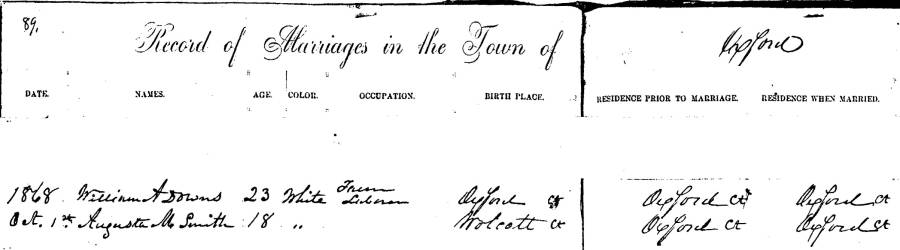 89.
Record of Marriages in the Town of Oxford
DATE. NAMES. AGE. COLOR. OCCUPATION. BIRTH PLACE. RESIDENCE PRIOR TO MARRIAGE. RESIDENCE WHEN MARRIED.
1868 William A Downs 23 White Farm Oxford Ct Oxford Ct Oxford Ct
Oct. 1st Augusta M Smith 18 " Wolcott Ct Oxford Ct Oxford Ct